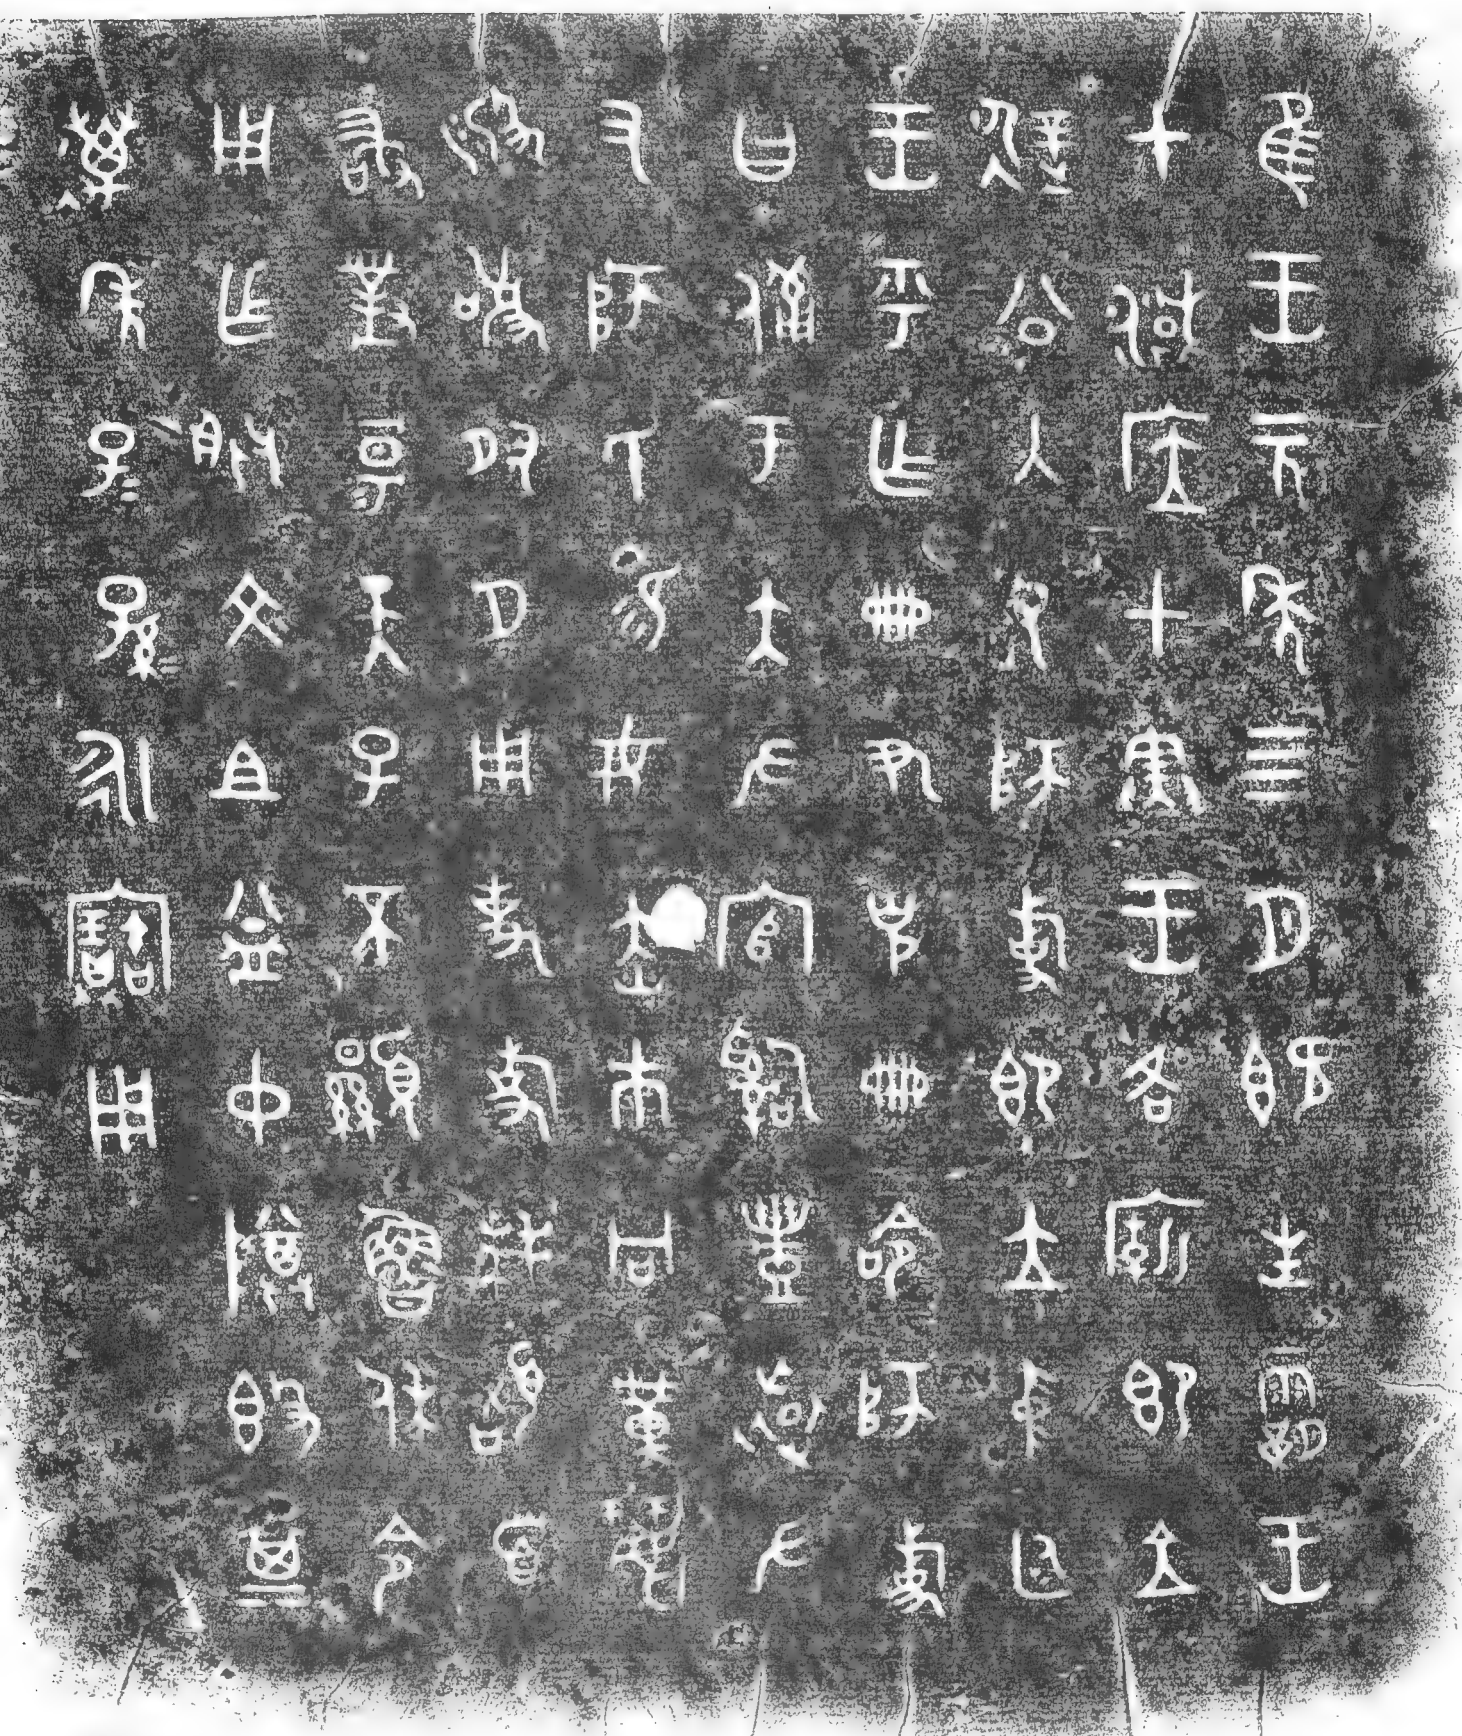 隹王元年四月既生霸王
才淢应甲寅王各廟即立
遟公入右師旋即立中廷
王乎乍冊尹克冊命師旋
曰備于大左官𤔲豐還左
右師氏易女赤巿冋黃麗
般敬夙夕用事旋拜稽首
敢對揚天子不顯魯休令
用乍朕文且益中尊簋其
萬年子=孫=永寶用